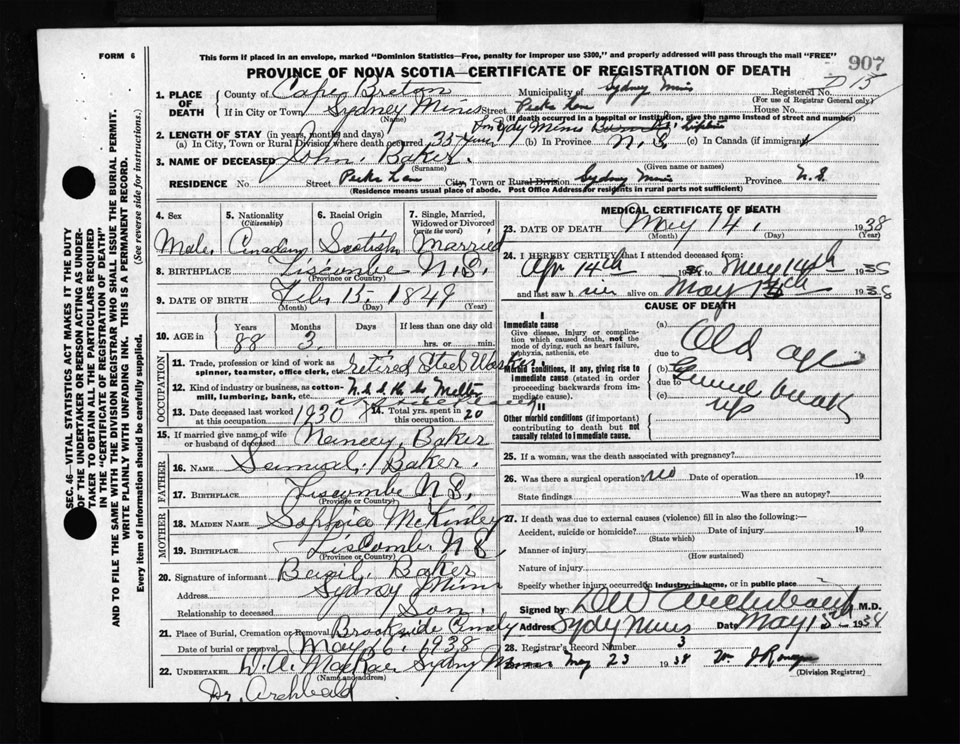 FORM 6
This form if placed in an envelope, marked "Dominion Statistics—Free, penalty for improper use $300," and properly addressed will pass through the mail "FREE"
907
PROVINCE OF NOVA SCOTIA—CERTIFICATE OF REGISTRATION OF DEATH
D 15
1. PLACE OF DEATH
County of Cape Breton Municipality of Sydney Mines Registered No.
(For use of Registrar General only.)
If in City or Town Sydney Mines Street Peck Lane House No.
(Name) (If death occurred in a hospital or institution, give the name instead of street and number)
2. LENGTH OF STAY (in years, months and days)
(a) In City, Town or Rural Division where death occurred 35 years (b) In Province N.S (c) In Canada (if immigrant)
3. NAME OF DECEASED John Baker.
(Surname) (Given name or names)
RESIDENCE No Street City, Town or Rural Division Sydney Mines Province N.S.
(Residence means usual place of abode. Post Office Address for residents in rural parts not sufficient)
4. Sex 5. Nationality (Citizenship) 6. Racial Origin 7. Single, Married, Widowed or Divorced (write the word)
Male. Scotish Married
8. BIRTHPLACE Liscombe N.S.
(Province or Country)
9. DATE OF BIRTH Feb. 15. 1849
(Month) (Day) (Year)
10. AGE in Years Months Days If less than one day old
88 3. hrs. or min.
OCCUPATION
11. Trade, profession or kind of work as spinner, teamster, office clerk, etc. retired Steel Worker.
12. Kind of industry or business, as cotton-mill, lumbering, bank, etc.
13. Date deceased last worked at this occupation 1930 14. Total yrs. spent in this occupation 20
15. If married give name of wife or husband of deceased Nancey Baker
FATHER
16. NAME Samual Baker.
17. BIRTHPLACE Liscombe N.S.
(Province or Country)
MOTHER
18. MAIDEN NAME Sophia McKinley
19. BIRTHPLACE Liscombe N.S.
(Province or Country)
20. Signature of informant Baker
Address Sydney Mines
Relationship to deceased Son.
21. Place of Burial, Cremation or Removal Brookside
Date of burial or removal May 16, 1938
22. UNDERTAKER D.A. MacRae Sydney Mines
(Name and address)
Dr. Archbald
MEDICAL CERTIFICATE OF DEATH
23. DATE OF DEATH May 14, 1938
(Month) (Day) (Year)
24. I HEREBY CERTIFY that I attended deceased from:
Apr 14th 19 to May 14th 1938
and last saw h alive on May 1938
CAUSE OF DEATH
I
Immediate cause
Give disease, injury or complication which caused death, not the mode of dying, such as heart failure, asphyxia, asthenia, etc
(a) Old age
due to
Morbid conditions, if any, giving rise to immediate cause (stated in order proceeding backwards from immediate cause).
(b) General break up
due to
(c)
II
Other morbid conditions (if important) contributing to death but not causally related to immediate cause.
25. If a woman, was the death associated with pregnancy?
26. Was there a surgical operation? no Date of operation 19
State findings Was there an autopsy?
27. If death was due to external causes (violence) fill in also the following:—
Accident, suicide or homicide? Date of injury 19
(State which)
Manner of injury
(How sustained)
Nature of injury
Specify whether injury occurred in industry, in home, or in public place
Signed by D W Archibald M.D.
Address Sydney Mines Date May 15th 1938
28. Registrar's Record Number 3
May 23 1938
(Division Registrar)
SEC. 46—VITAL STATISTICS ACT MAKES IT THE DUTY
OF THE UNDERTAKER OR PERSON ACTING AS UNDERTAKER TO OBTAIN ALL THE PARTICULARS REQUIRED
IN THE "CERTIFICATE OF REGISTRATION OF DEATH"
AND TO FILE THE SAME WITH THE DIVISION REGISTRAR WHO SHALL ISSUE THE BURIAL PERMIT.
WRITE PLAINLY WITH UNFADING INK. THIS IS A PERMANENT RECORD.
Every item of information should be carefully supplied. (See reverse side for instructions.)